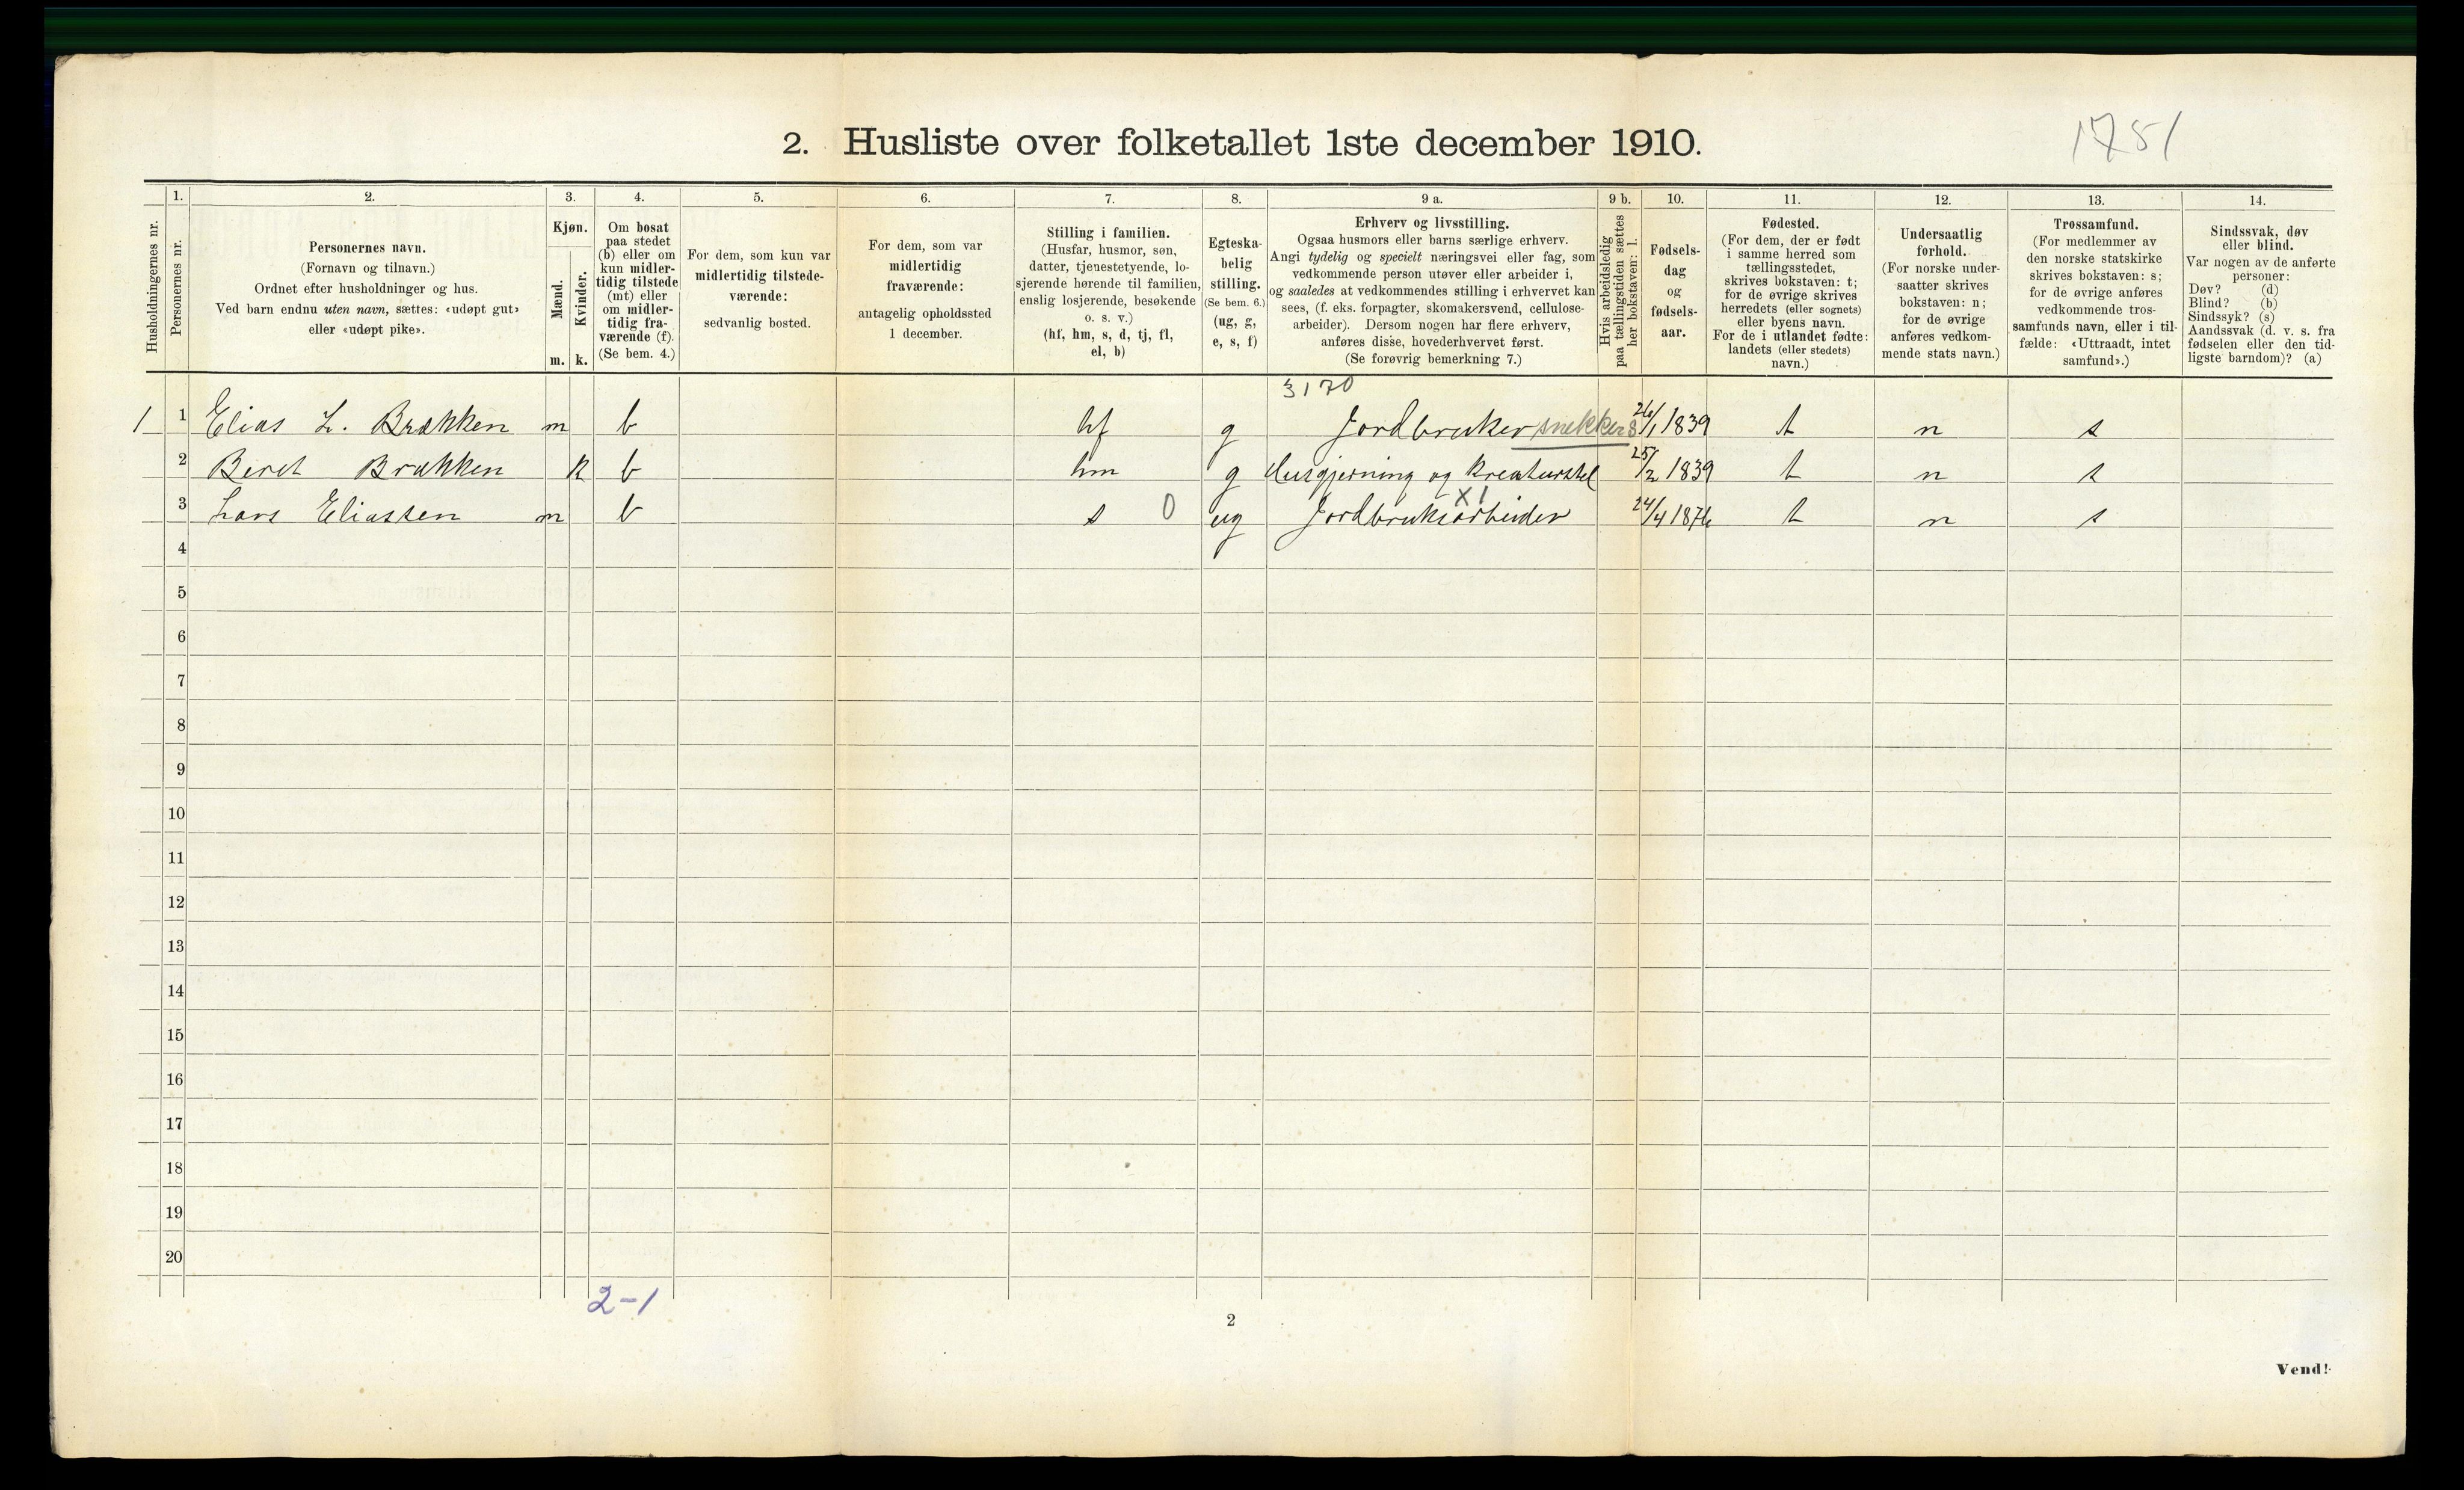 1751
2. Husliste over folketallet 1ste december 1910.
Husholdningernes nr.
1.
Personernes nr.
2.
Personernes navn.
(Fornavn og tilnavn.)
Ordnet efter husholdninger og hus.
Ved barn endnu uten navn, sættes: «udøpt gut»
eller «udøpt pike».
3.
Kjøn.
Mænd.
Kvinder.
m. k.
4.
Om bosat
paa stedet
(b) eller om
kun midler-
tidig tilstede
(mt) eller
om midler-
tidig fra-
værende (f).
(Se bem. 4.)
5.
For dem, som kun var
midlertidig tilstede-
værende:
sedvanlig bosted.
6.
For dem, som var
midlertidig
fraværende:
antagelig opholdssted
1 december.
7.
Stilling i familien.
(Husfar, husmor, søn,
datter, tjenestetyende, lo-
sjerende hørende til familien,
enslig losjerende, besøkende
o. s. v.)
(hf, hm, s, d, tj, fl,
el, b)
8.
Egteska-
belig
stilling.
(Se bem. 6.)
(ug, g,
e, s, f)
9 a.
Erhverv og livsstilling.
Ogsaa husmors eller barns særlige erhverv.
Angi tydelig og specielt næringsvei eller fag, som
vedkommende person utøver eller arbeider i,
og saaledes at vedkommendes stilling i erhvervet kan
sees, (f. eks. forpagter, skomakersvend, cellulose-
arbeider). Dersom nogen har flere erhverv,
anføres disse, hovederhvervet først.
(Se forøvrig bemerkning 7.)
9 b.
Hvis arbeidsledig
paa tællingstiden sættes
her bokstaven: l.
10.
Fødsels-
dag
og
fødsels-
aar.
11.
Fødested.
(For dem, der er født
i samme herred som
tællingsstedet,
skrives bokstaven: t;
for de øvrige skrives
herredets (eller sognets)
eller byens navn.
For de i utlandet fødte:
landets (eller stedets)
navn.)
12.
Undersaatlig
forhold.
(For norske under-
saatter skrives
bokstaven: n;
for de øvrige
anføres vedkom-
mende stats navn.)
13.
Trossamfund.
(For medlemmer av
den norske statskirke
skrives bokstaven: s;
for de øvrige anføres
vedkommende tros-
samfunds navn, eller i til-
fælde: «Uttraadt, intet
samfund».)
14.
Sindssvak, døv
eller blind.
Var nogen av de anførte
personer:
Døv? (d)
Blind? (b)
Sindssyk? (s)
Aandssvak (d. v. s. fra
fødselen eller den tid-
ligste barndom)? (a)
3170
1 1 Elias L. Brækken m b hf g Jordbruker snekker 8 26/1 1839 t n s
2 Beret Brækken k b hm g Husgjerning og kreaturstel 25/2 1839 t n s
X1
3 Lars Eliassen m b s 0 ug Jordbruksarbeider 24/4 1876 t n s
4
5
6
7
8
9
10
11
12
13
14
15
16
17
18
19
20
2-1
2
Vend!